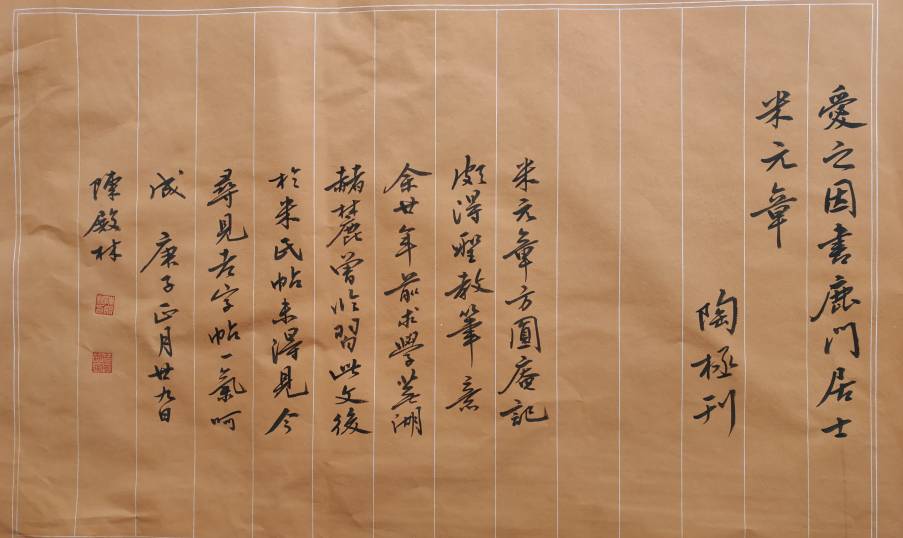 愛之因書鹿門居士
米元章
陶極刊
米元章方圓庵記
頗得聖教筆意
余廿年前求學蕪湖
赭麓曾临習此文後
於米氏帖未得見今
尋見老字帖一氣呵
成 庚子正月廿九日
陳殿林